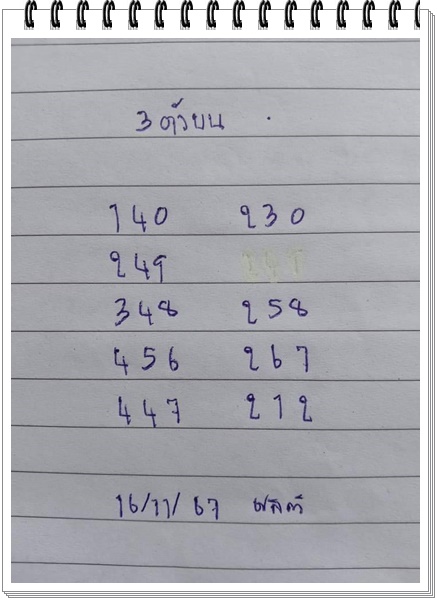 3 ตัวบน
140 230
249
348 258
456 267
447 212
16/11/67